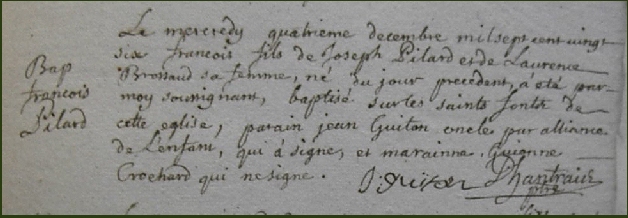 Le mercredy quatrieme decembre mil sept cent vingt
six francois fils de Joseph Pilard et de Laurence
Bap
Brossaud sa femme, né du jour precedent, a été par
francois
moy soussignant, baptisé sur les saints fonts de
Pilard
cette eglise, parain jean Guiton oncle par alliance
de L'enfant, qui à signé, et marainne Guionne
Crochard qui ne signe.